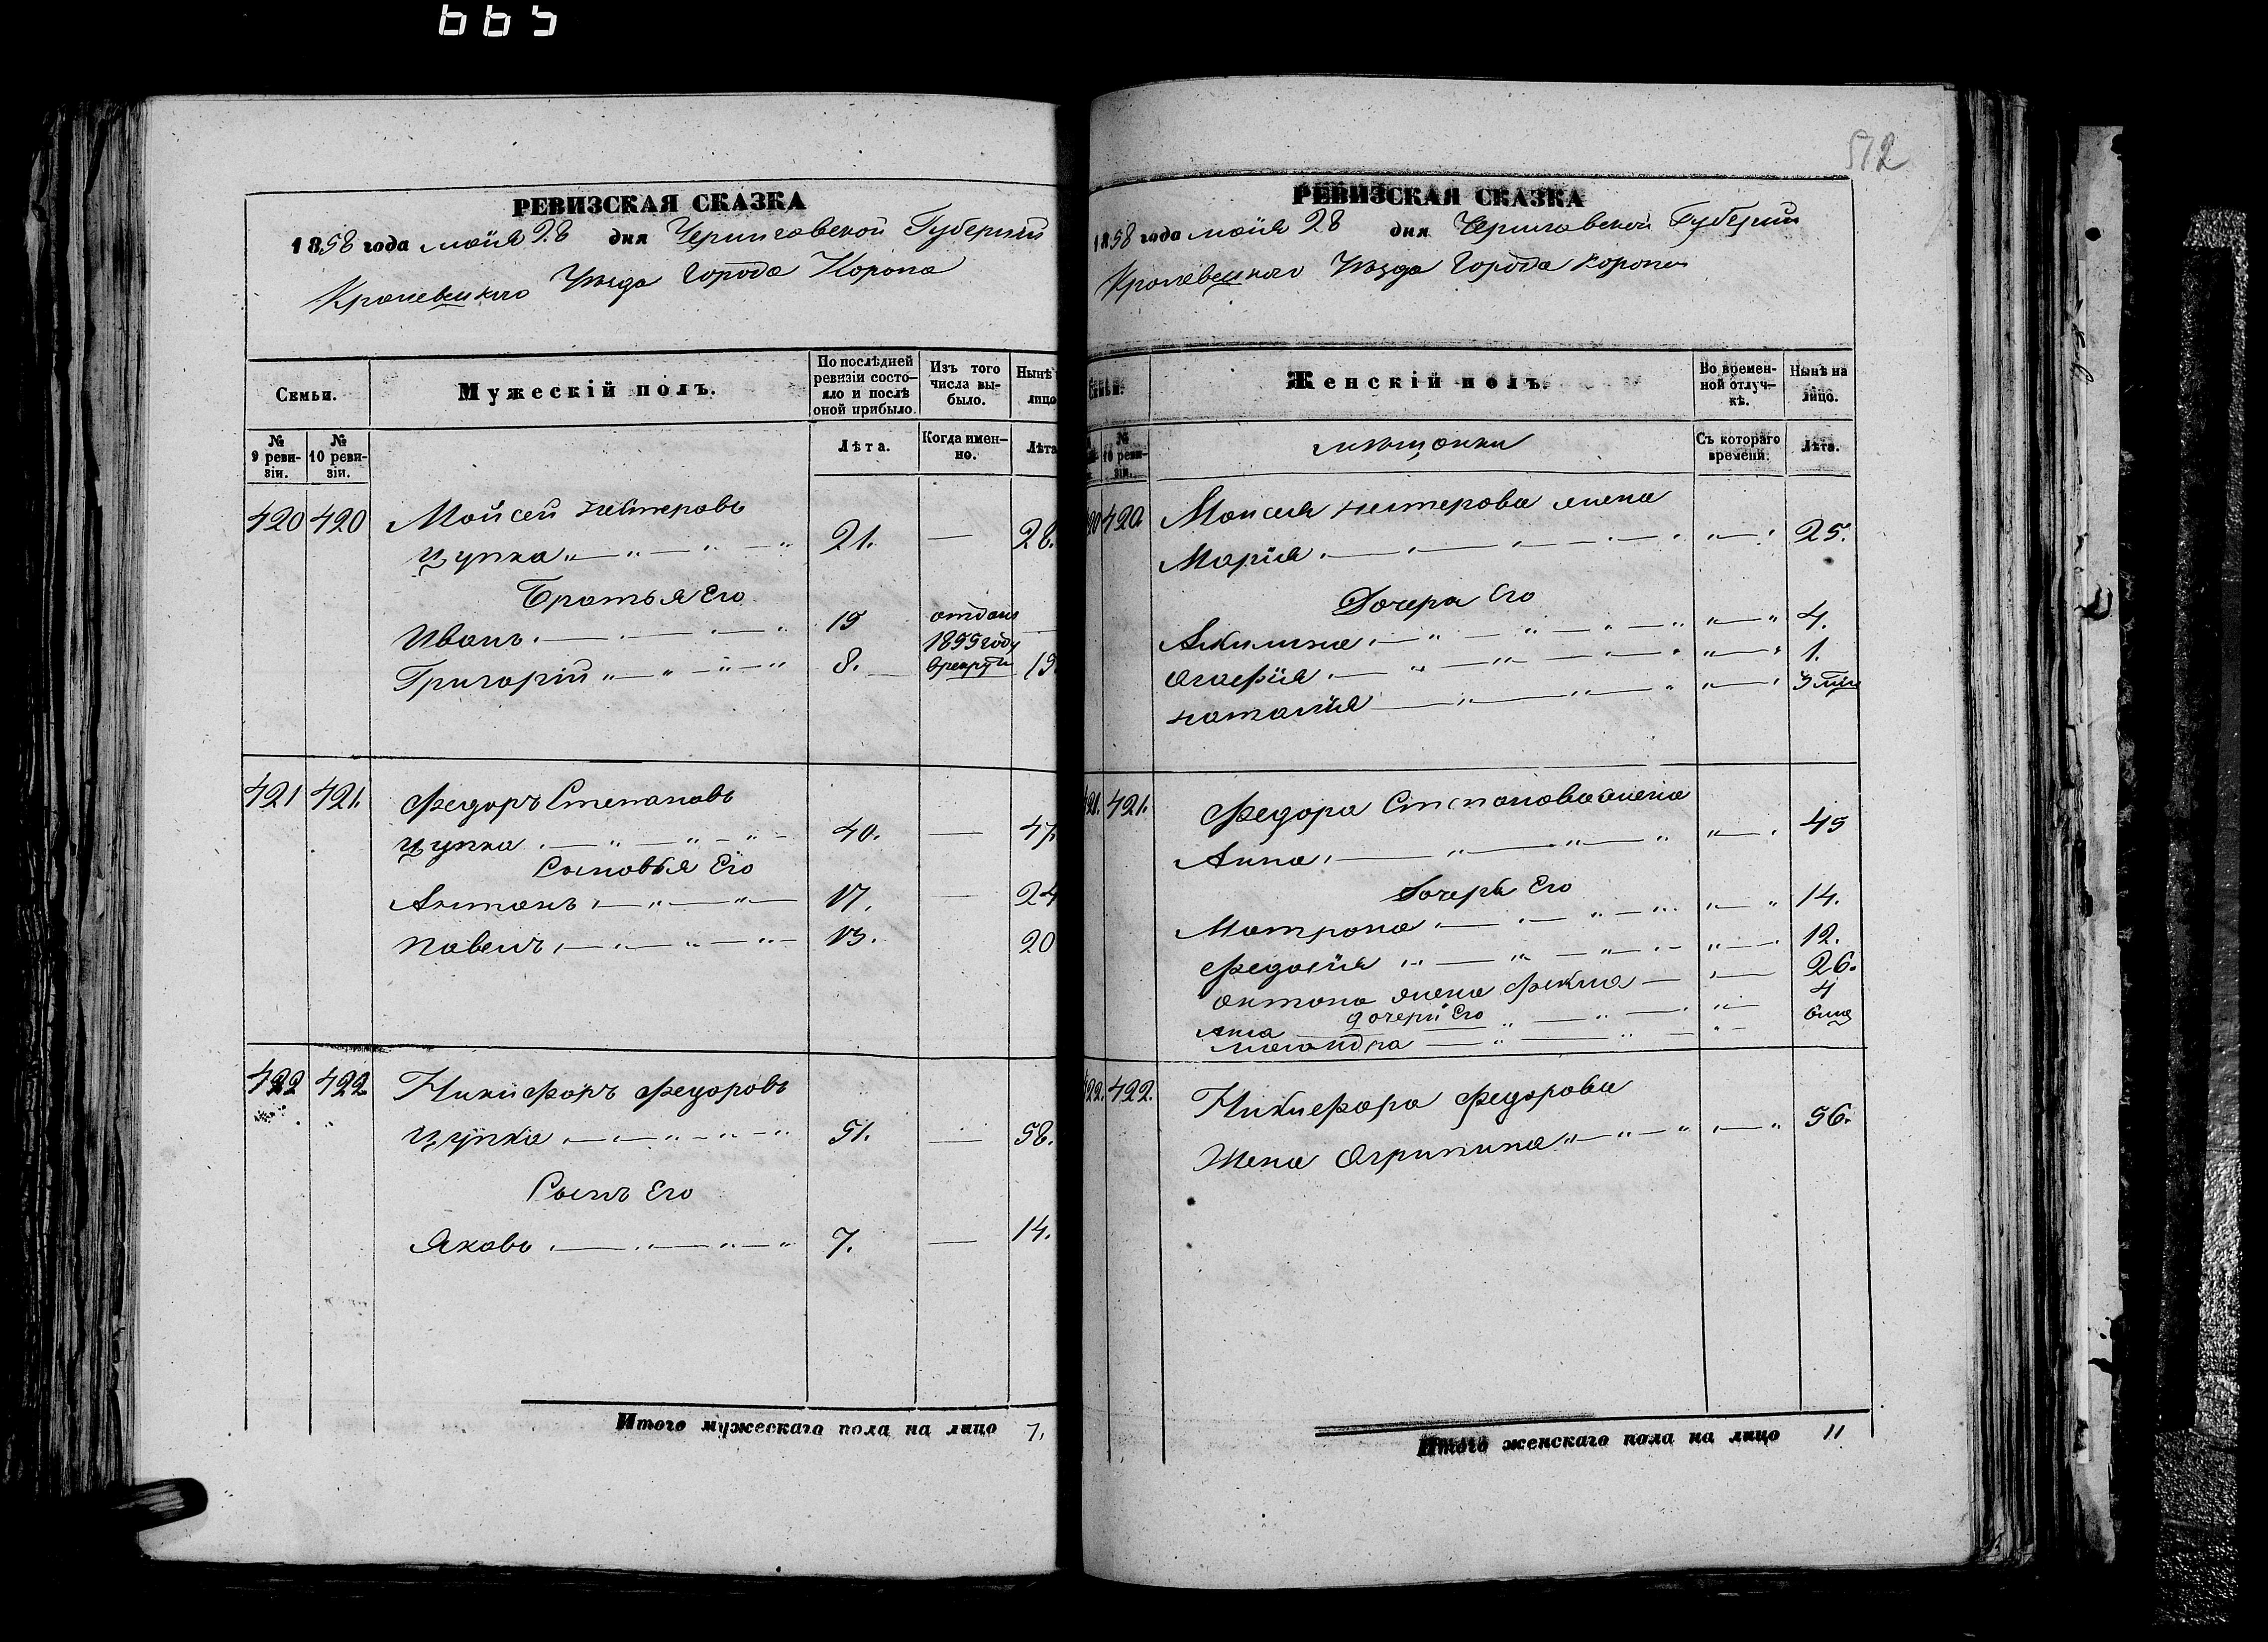 665
РЕВИЗСКАЯ СКАЗКА
1858 года маія 28 дня Черниговской Губерніи
Кролевецкого Уѣзда Города Коропа
Семьи.
Мужескій полъ.
По послѣдней ревизіи состо-
яло и послѣ оной прибыло.
Изъ того числа вы-
было.
Нынѣ
лицо
№ 9 реви-
зіи.
№ 10 реви-
зіи.
Лѣта.
Когда имен-
но.
Лѣта
420 420 Мойсей Нестеровъ
Цупка 21. — 28.
Братья Его
Иванъ 15 отданъ
1855 году
Григорій 8. врекруты 15
421 421. Федоръ Степановъ
Цупка 40. — 47.
Сыновья Его
Антонъ 17. — 24
Павелъ 13. 20
422 422. Никифоръ Федоровъ
Цупка 51. — 58.
Сынъ Его
Яковъ 7. — 14.
Итого мужескаго пола на лицо 7.
512
РЕВИЗСКАЯ СКАЗКА
1858 года маія 28 дня Черниговской Губерніи
Кролевецкого Уѣзда Города Коропа
Семьи.
Женскій полъ.
Во времен-
ной отлуч-
кѣ.
Нынѣ на
лицо.
№ 10 реви-
зіи.
мѣщанки
Съ котораго
времени.
Лѣта.
420. Моисея Нестерова жена
Марія 25.
Дочери Его
Акилина 4.
Агафія 1.
Наталія 3 мѣс
421. Федора Степанова жена
Анна 45
Дочери Его
Матрона 14.
Федосія 12.
Антона жена Фекла — 26.
дочери Его 4
Анна
6 мѣс
422. Никифора Федорова
Жена Агрипина 56.
Итого женскаго пола на лицо 11